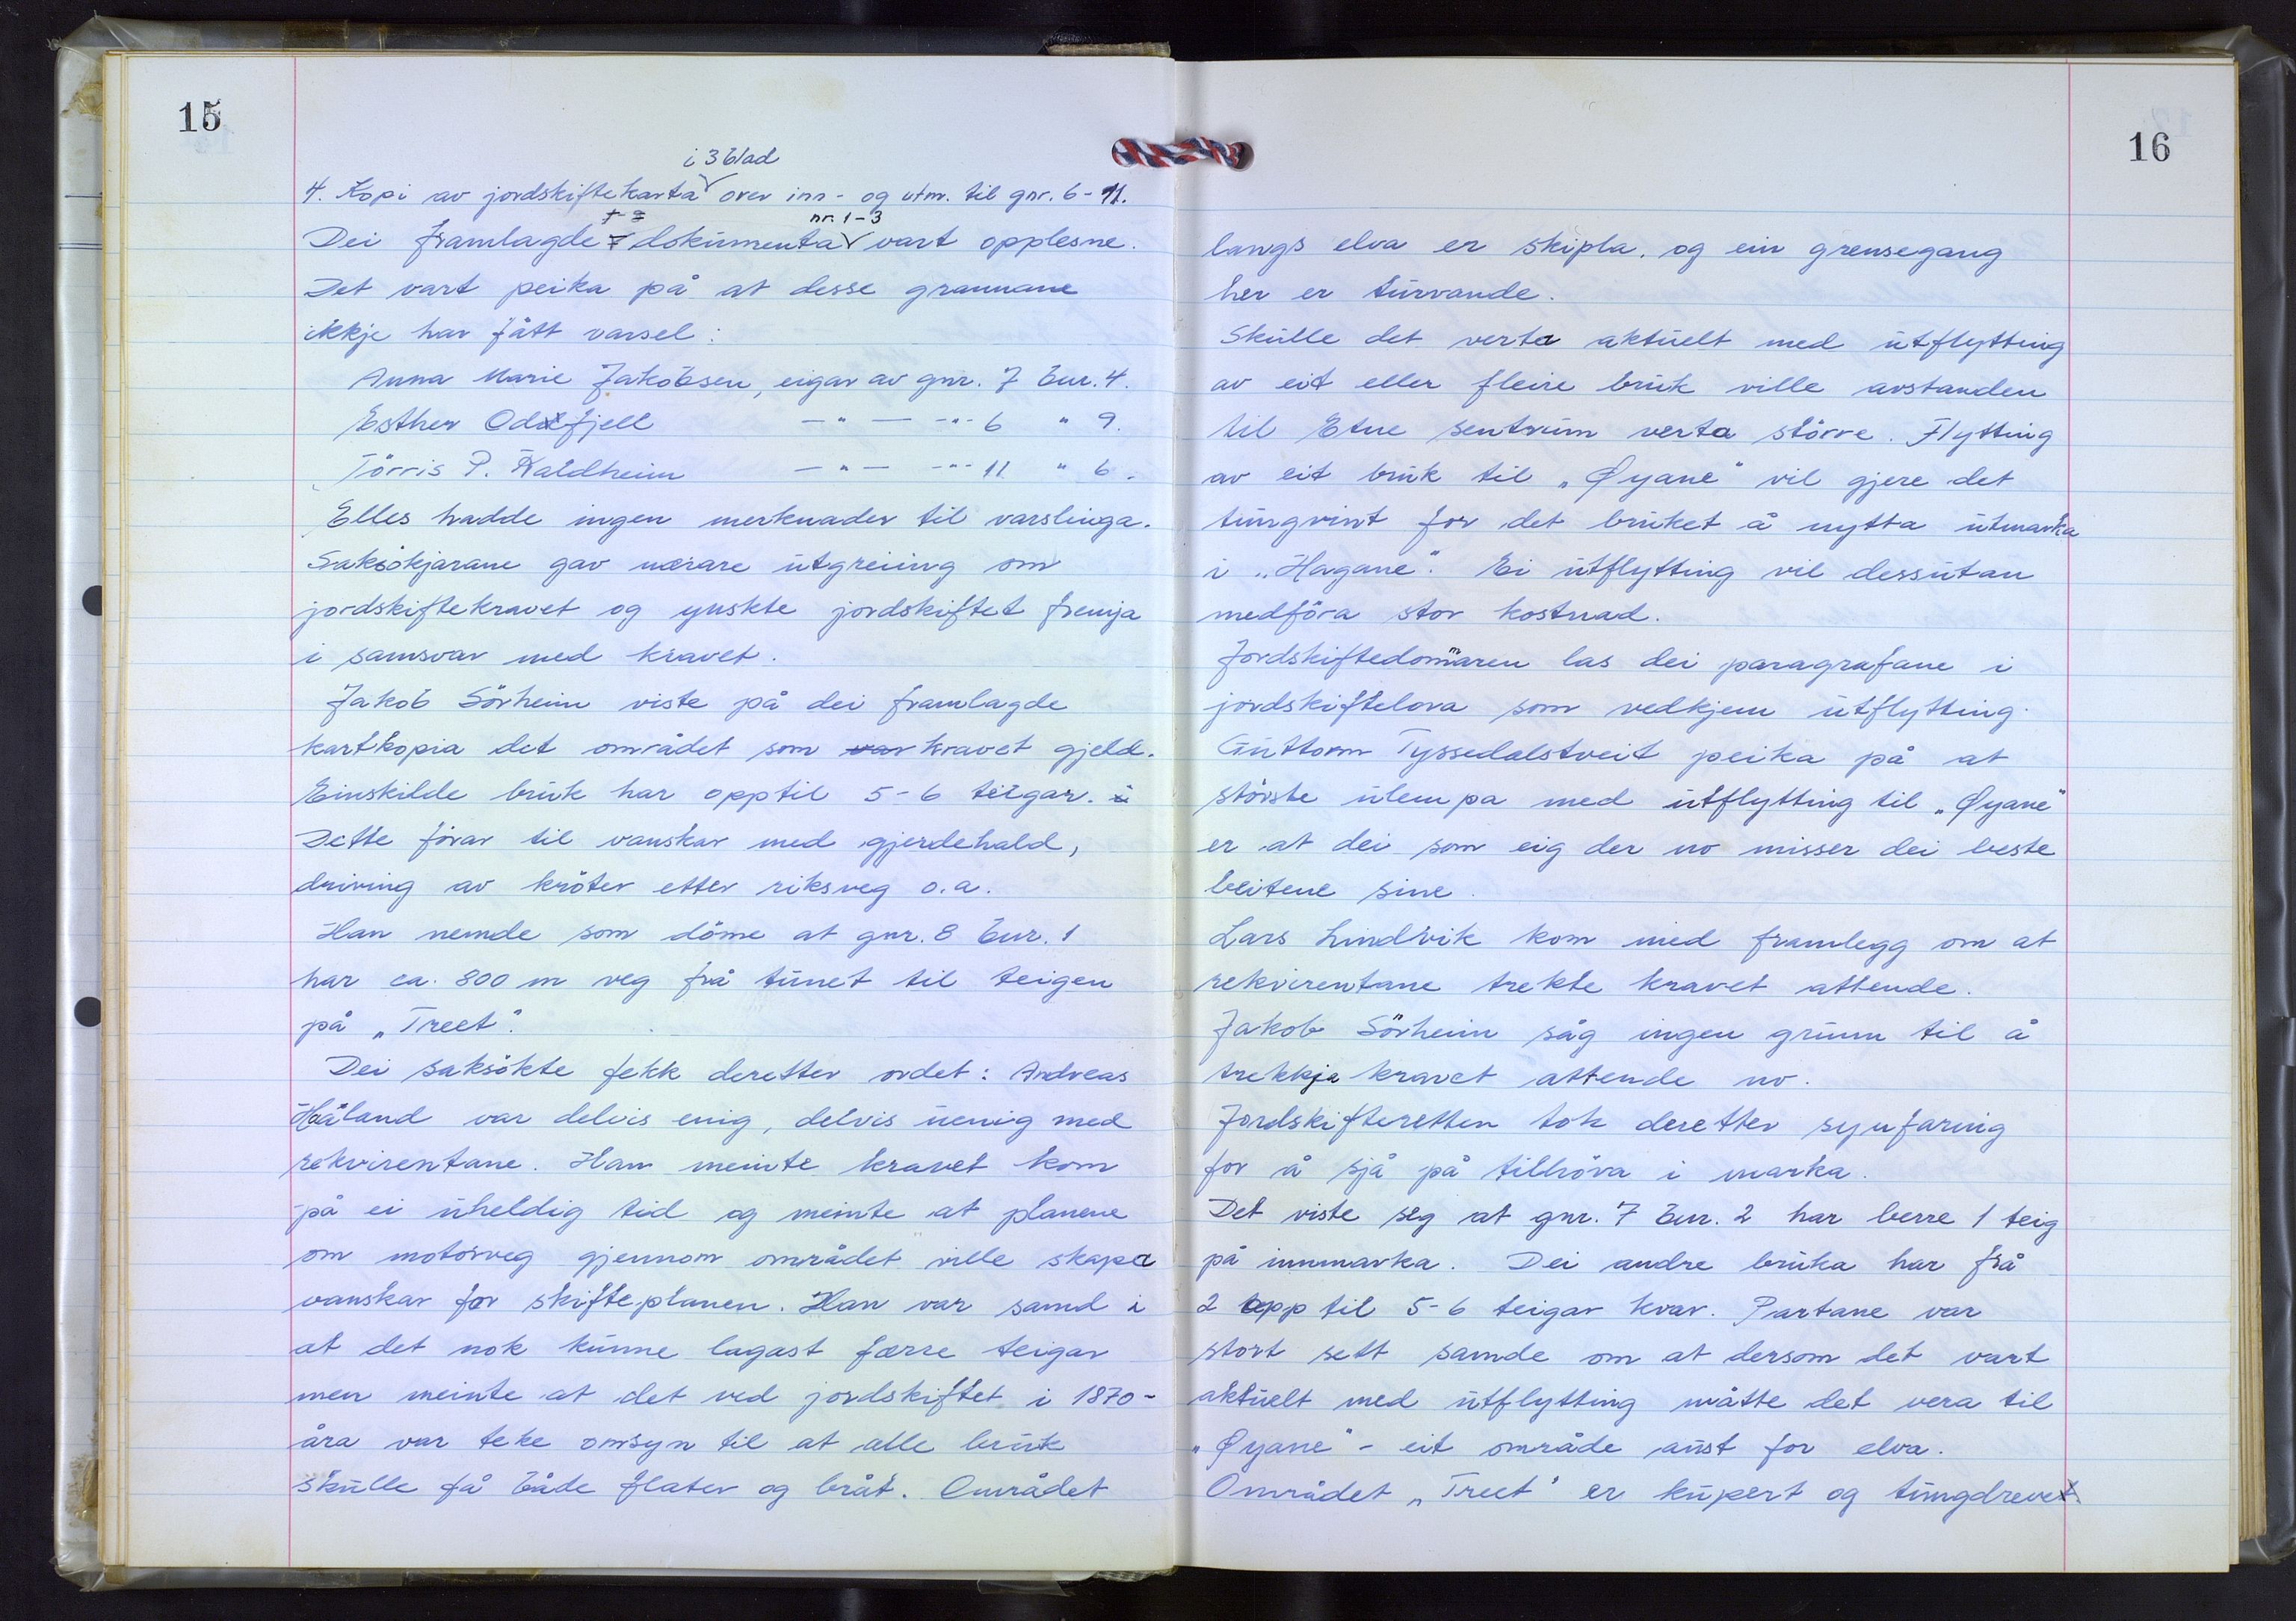 15
i 3 blad
4. Kopi av jordskiftekarta over inn- og utm. til gnr. 6-11.
nr. 1-3
Dei framlagde dokumenta vart opplesne.
Det vart peika på at desse grannane
ikkje har fått varsel:
Anna Marie Jakobsen, eigar av gnr. 7 bnr. 4.
Esther Odefjell — " — -"- 6 " 9.
Törris P. Kaldheim — " — -"- 11 " 6.
Elles hadde ingen merknader til varslinga.
Saksökjarane gav nærare utgreiing om
jordskiftekravet og ynskte jordskiftet fremja
i samsvar med kravet.
Jakob Sörheim viste på dei framlagde
kartkopia det området som var kravet gjeld.
Einskilde bruk har opptil 5-6 teigar.
Dette förar til vanskar med gjerdehald,
driving av kröter etter riksveg o.a.
Han nemde som döme at gnr. 8 bnr. 1
har ca. 800 m veg frå tunet til teigen
på „Treet".
Dei saksökte fekk deretter ordet: Andreas
Håland var delvis enig, delvis uenig med
rekvirentane. Han meinte kravet kom
på ei uheldig tid og meinte at planene
om motorveg gjennom området ville skapa
vanskar for skifteplanen. Han var samd i
at det nok kunne lagast færre teigar
men meinte at det ved jordskiftet i 1870-
åra var teke omsyn til at alle bruk
skulle få både flater og bråt. Området
16
langs elva er skipla, og ein grensegang
her er turvande.
Skulle det verta aktuelt med utflytting
av eit eller fleire bruk ville avstanden
til Etne sentrum verta större. Flytting
av eit bruk til „Øyane" vil gjere det
tungvint for det bruket å nytta utmarka
i „Hagane". Ei utflytting vil dessutan
medföra stor kostnad.
Jordskiftedommaren las dei paragrafane i
jordskiftelova som vedkjem utflytting.
Guttorm Tyssedalstveit peika på at
största ulempa med utflytting til „Øyane"
er at dei som eig der no misser dei beste
beitene sine.
Lars Lindvik kom med framlegg om at
rekvirentane trekte kravet attende.
Jakob Sörheim såg ingen grunn til å
trekkja kravet attende no.
Jordskifteretten tok deretter synfaring
for å sjå på tilhöva i marka.
Det viste seg at gnr. 7 bnr. 2 har berre 1 teig
på innmarka. Dei andre bruka har frå
2 opp til 5-6 teigar kvar. Partane var
stort sett samde om at dersom det vart
aktuelt med utflytting måtte det vera til
„Øyane" - eit område aust for elva.
Området „Treet" er kupert og tungdreve.